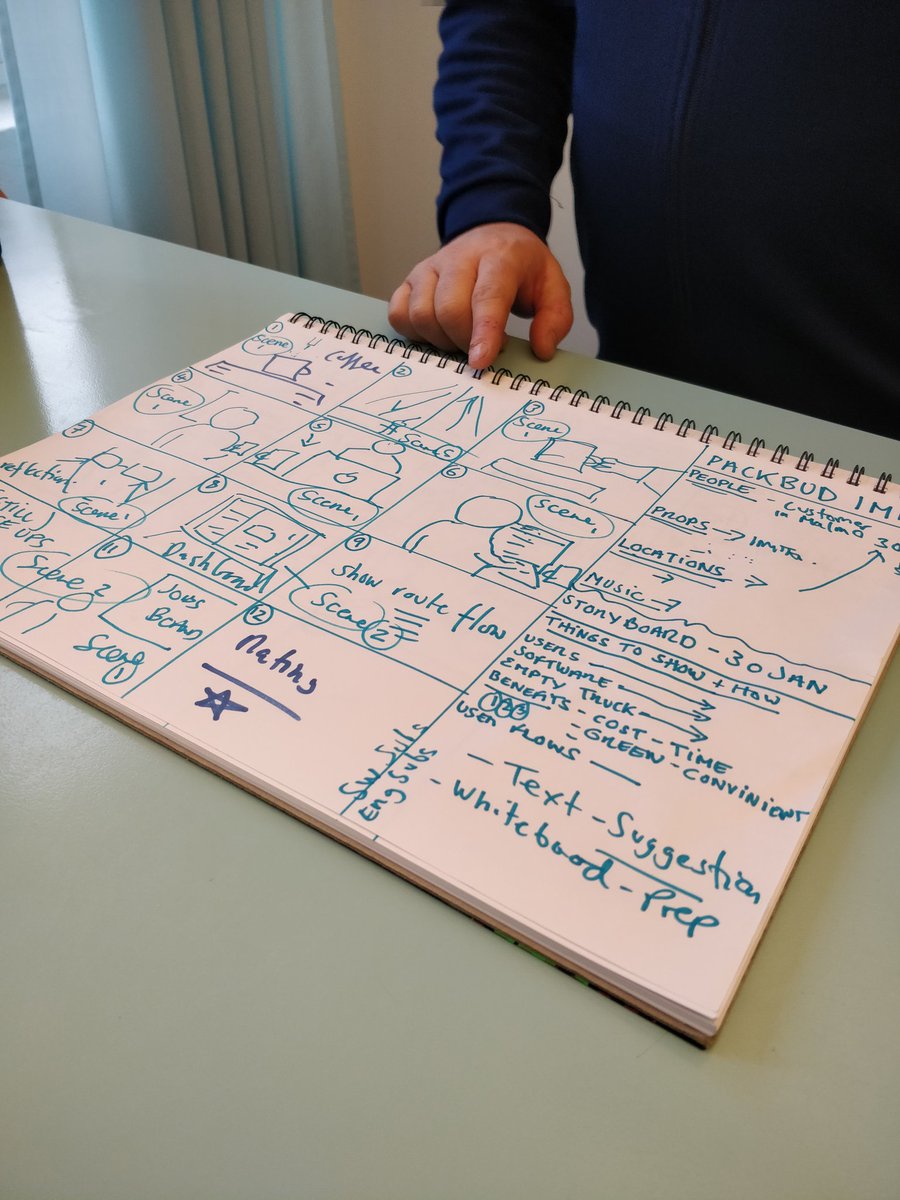 ① Scene 1
Coffee
②
③
Scene 1
④
Scene 1
⑤
Scene 1
⑥
Scene 1
⑦
reflection
Scene 1
⑧
Dashboard
⑨
show route flow
Scene ②
UPS
Scene 2
⑪
Scene 1
⑫
PACKBUD
PEOPLE - Customer
in Malmö
PROPS
LOCATIONS
MUSIC
STORYBOARD - 30 JAN
THINGS TO SHOW + HOW
USERS
SOFTWARE
EMPTY TRUCK
BENEFITS - COST - TIME
- GREEN - CONVINIENT
①②③
USER FLOWS
- Text - Suggestion
- Whiteboard - Prep
Sw Subs
Eng Subs